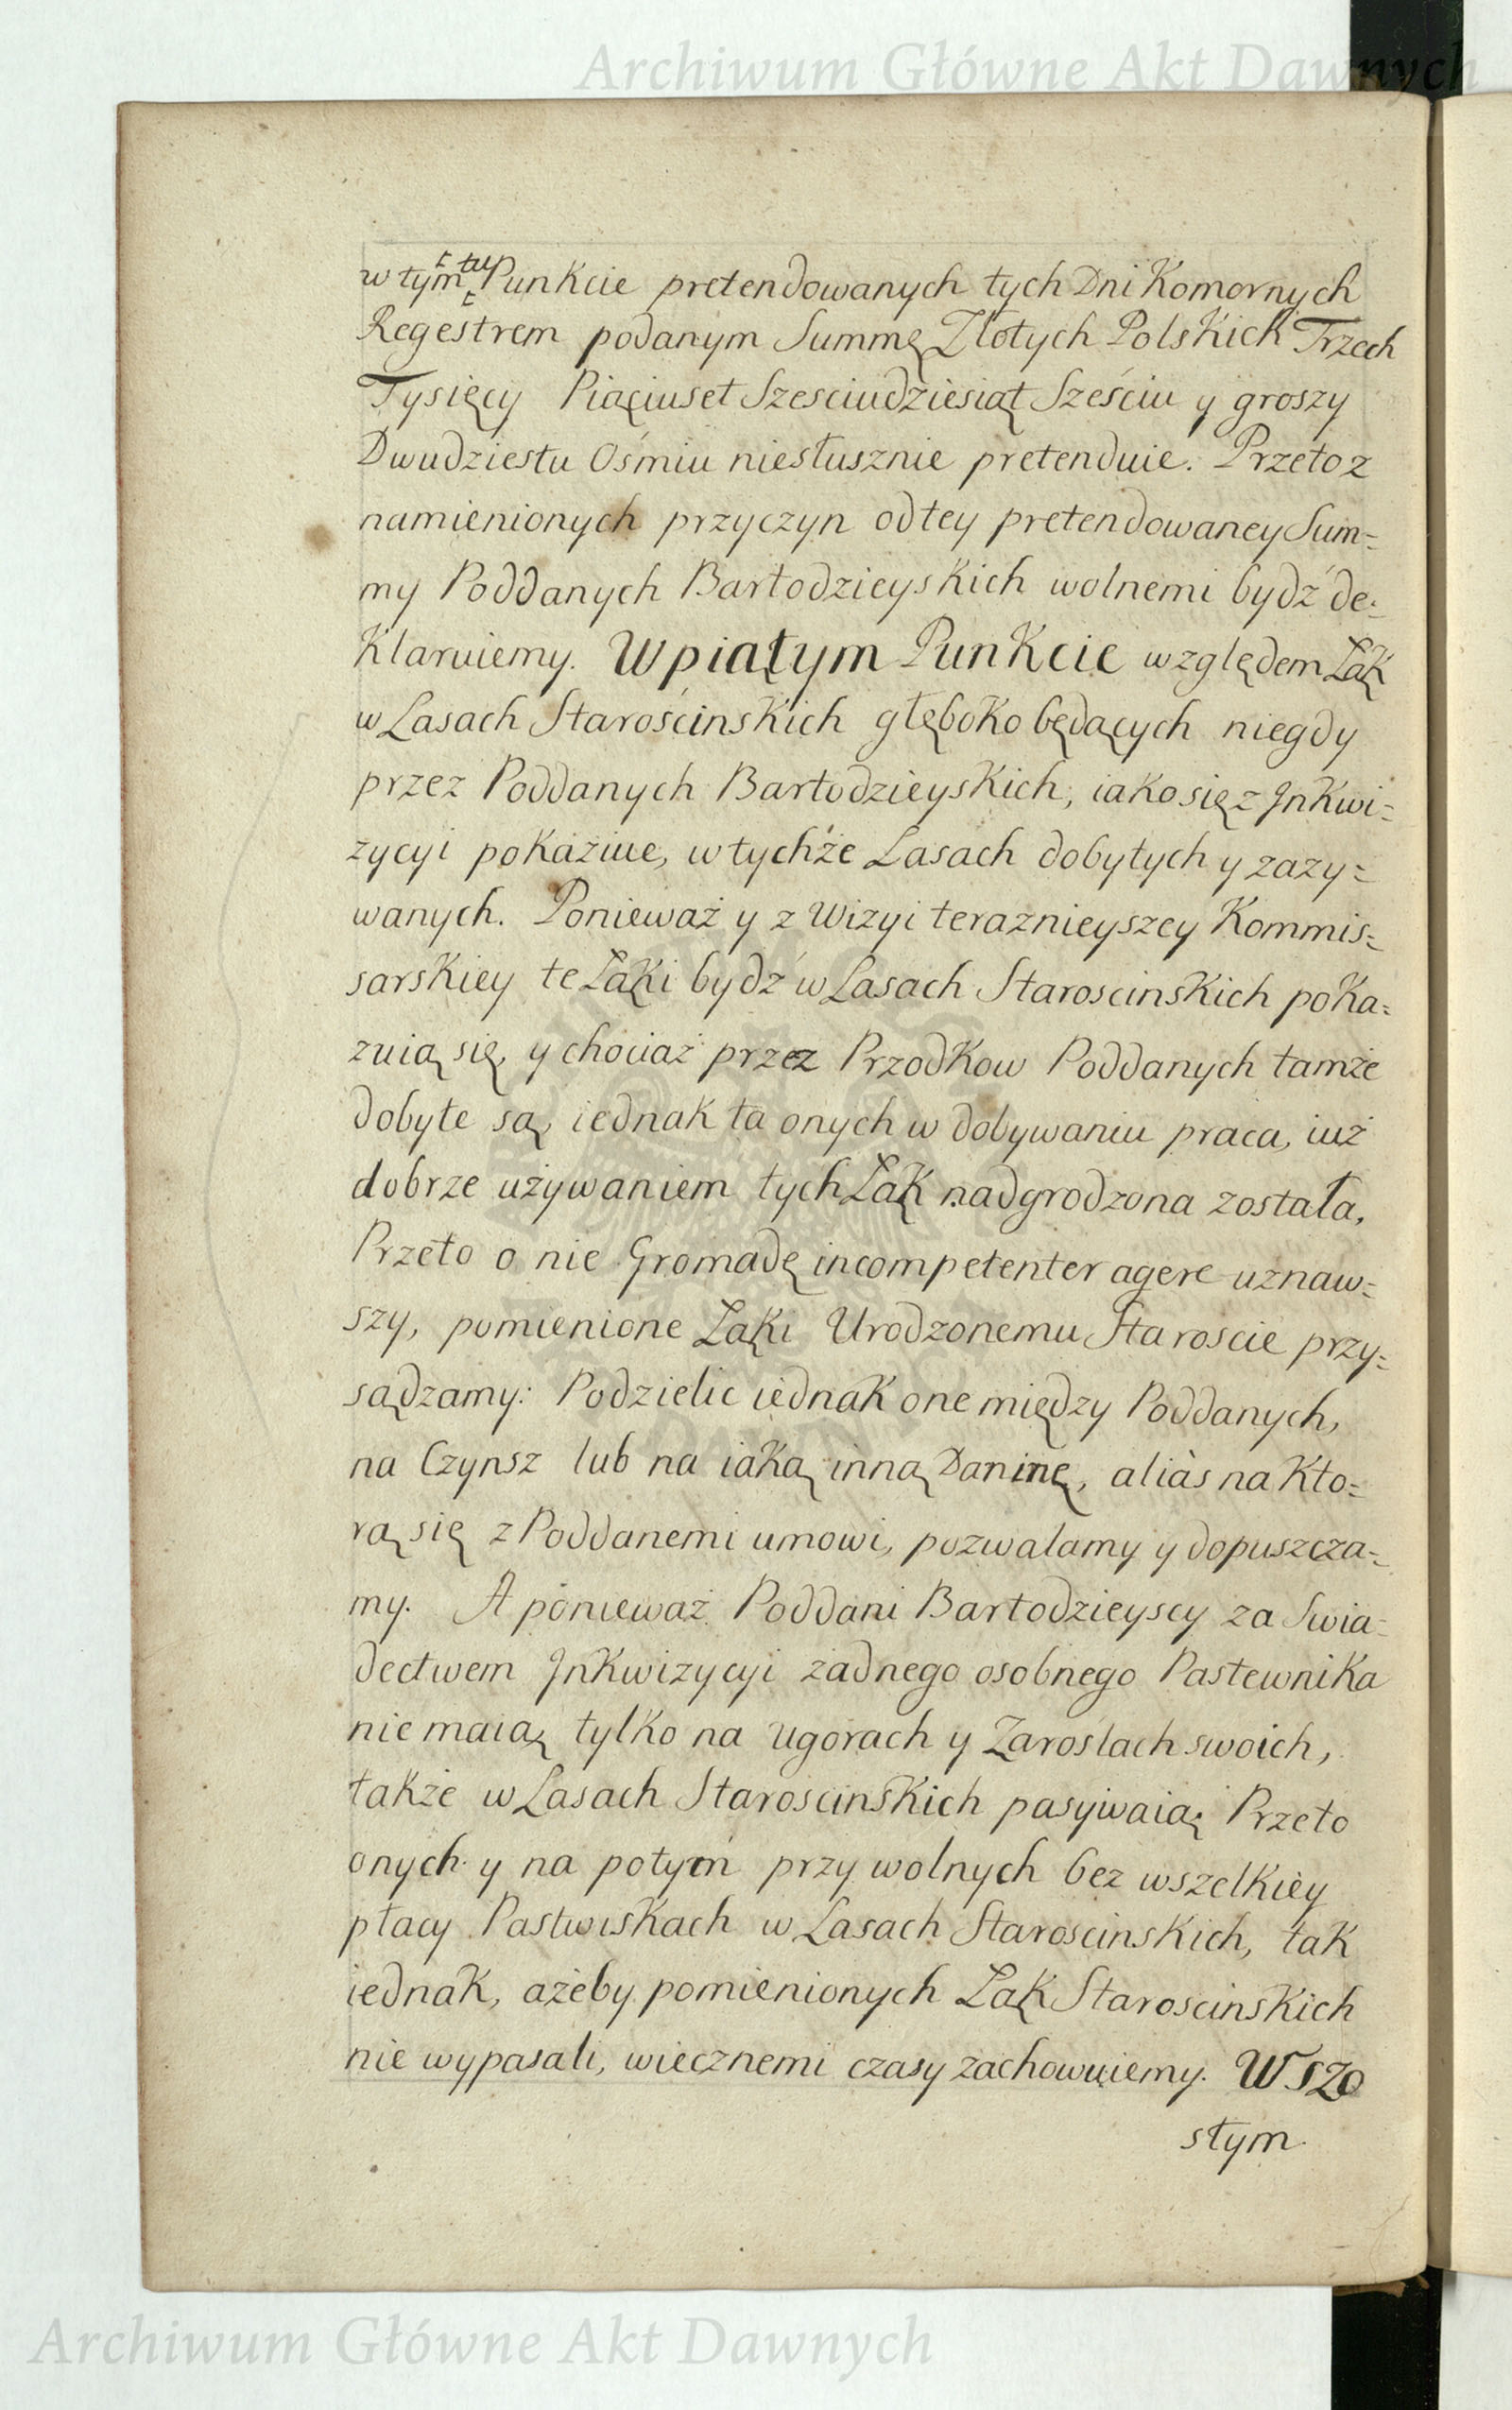 Archiwum Główne Akt Dawnych
w tym tu Punkcie pretendowanych tych Dni Komornych
Regestrem podanym Summę Złotych Polskich Trzech
Tysięcy Piąciuset Szesciudziesiąt Sześciu y groszy
Dwudziestu Ośmiu niesłusznie pretenduie. Przeto z
namienionych przyczyn od tey pretendowaney Sum=
my Poddanych Bartodzieyskich wolnemi bydź de=
klaruiemy. W piątym Punkcie względem Łąk
w Lasach Starościnskich głęboko będących niegdy
przez Poddanych Bartodzieyskich, iako się z Jnkwi=
zycyi pokaźuie, w tychże Lasach dobytych y zazy=
wanych. Ponieważ y z Wizyi teraznieyszey Kommis=
sarskiey te Łąki bydź w Lasach Staroscinskich poka=
zuią się, y chociaż przez Przodkow Poddanych tamże
dobyte są, iednak ta onych w dobywaniu praca, iuż
dobrze używaniem tych Łąk nadgrodzona została,
Przeto o nie Gromadę incompetenter agere uznaw=
szy, pomienione Łąki Urodzonemu Staroscie przy=
sądzamy: Podzielic iednak one między Poddanych,
na Czynsz lub na iaką inną Daninę, aliàs na kto=
rą się z Poddanemi umowi, pozwalamy y dopuszcza=
my. A ponieważ Poddani Bartodzieyscy za Swia=
dectwem Jnkwizycyi żadnego osobnego Pastewnika
nie maią tylko na Ugorach y Zaroślach swoich,
także w Lasach Staroscinskich pasywaią; Przeto
onych y na potym przy wolnych bez wszelkiey
płacy Pastwiskach w Lasach Staroscinskich, tak
iednak, ażeby pomienionych Łąk Staroscinskich
nie wypasali, wiecznemi czasy zachowuiemy. W Szo
stym
Archiwum Główne Akt Dawnych